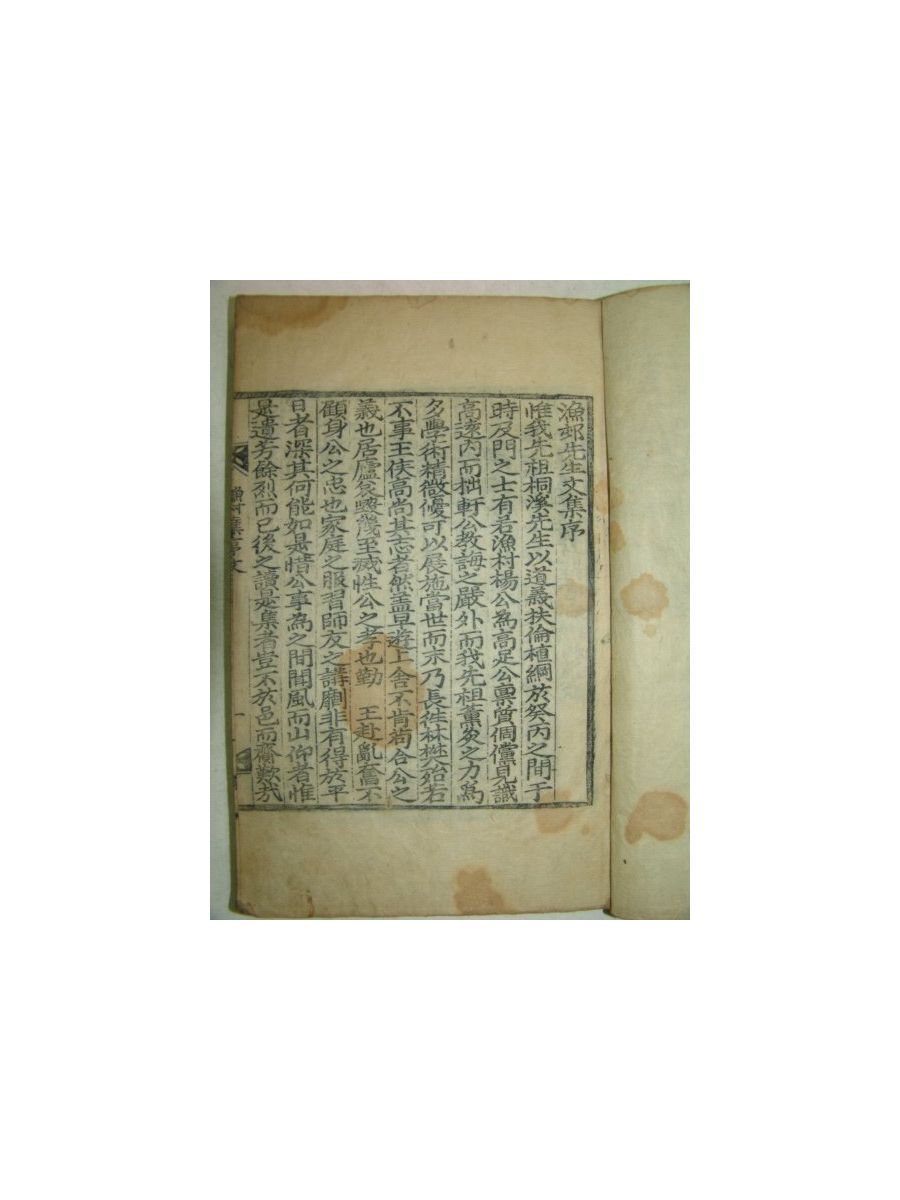 漁邨先生文集序
惟我先祖桐溪先生以道義扶倫植綱於癸丙之間于
時及門之士有若漁村楊公為高足公稟質倜儻見識
高遠內而拙軒公教誨之嚴外而我先祖薰炙之力為
多學術精微優可以展施當世而末乃長徃林樊殆若
不事王侯高尚其志者然盖早遊上舍不肯苟合公之
義也居廬哀毀幾至滅性公之孝也勤 王赴亂奮不
顧身公之忠也家庭之服習師友之講劘非有得於平
日者深其何能如是惜公事為之間聞風而山仰者惟
是遺芳餘烈而已後之讀是集者豈不於邑而齎歎哉
漁村集序文
一